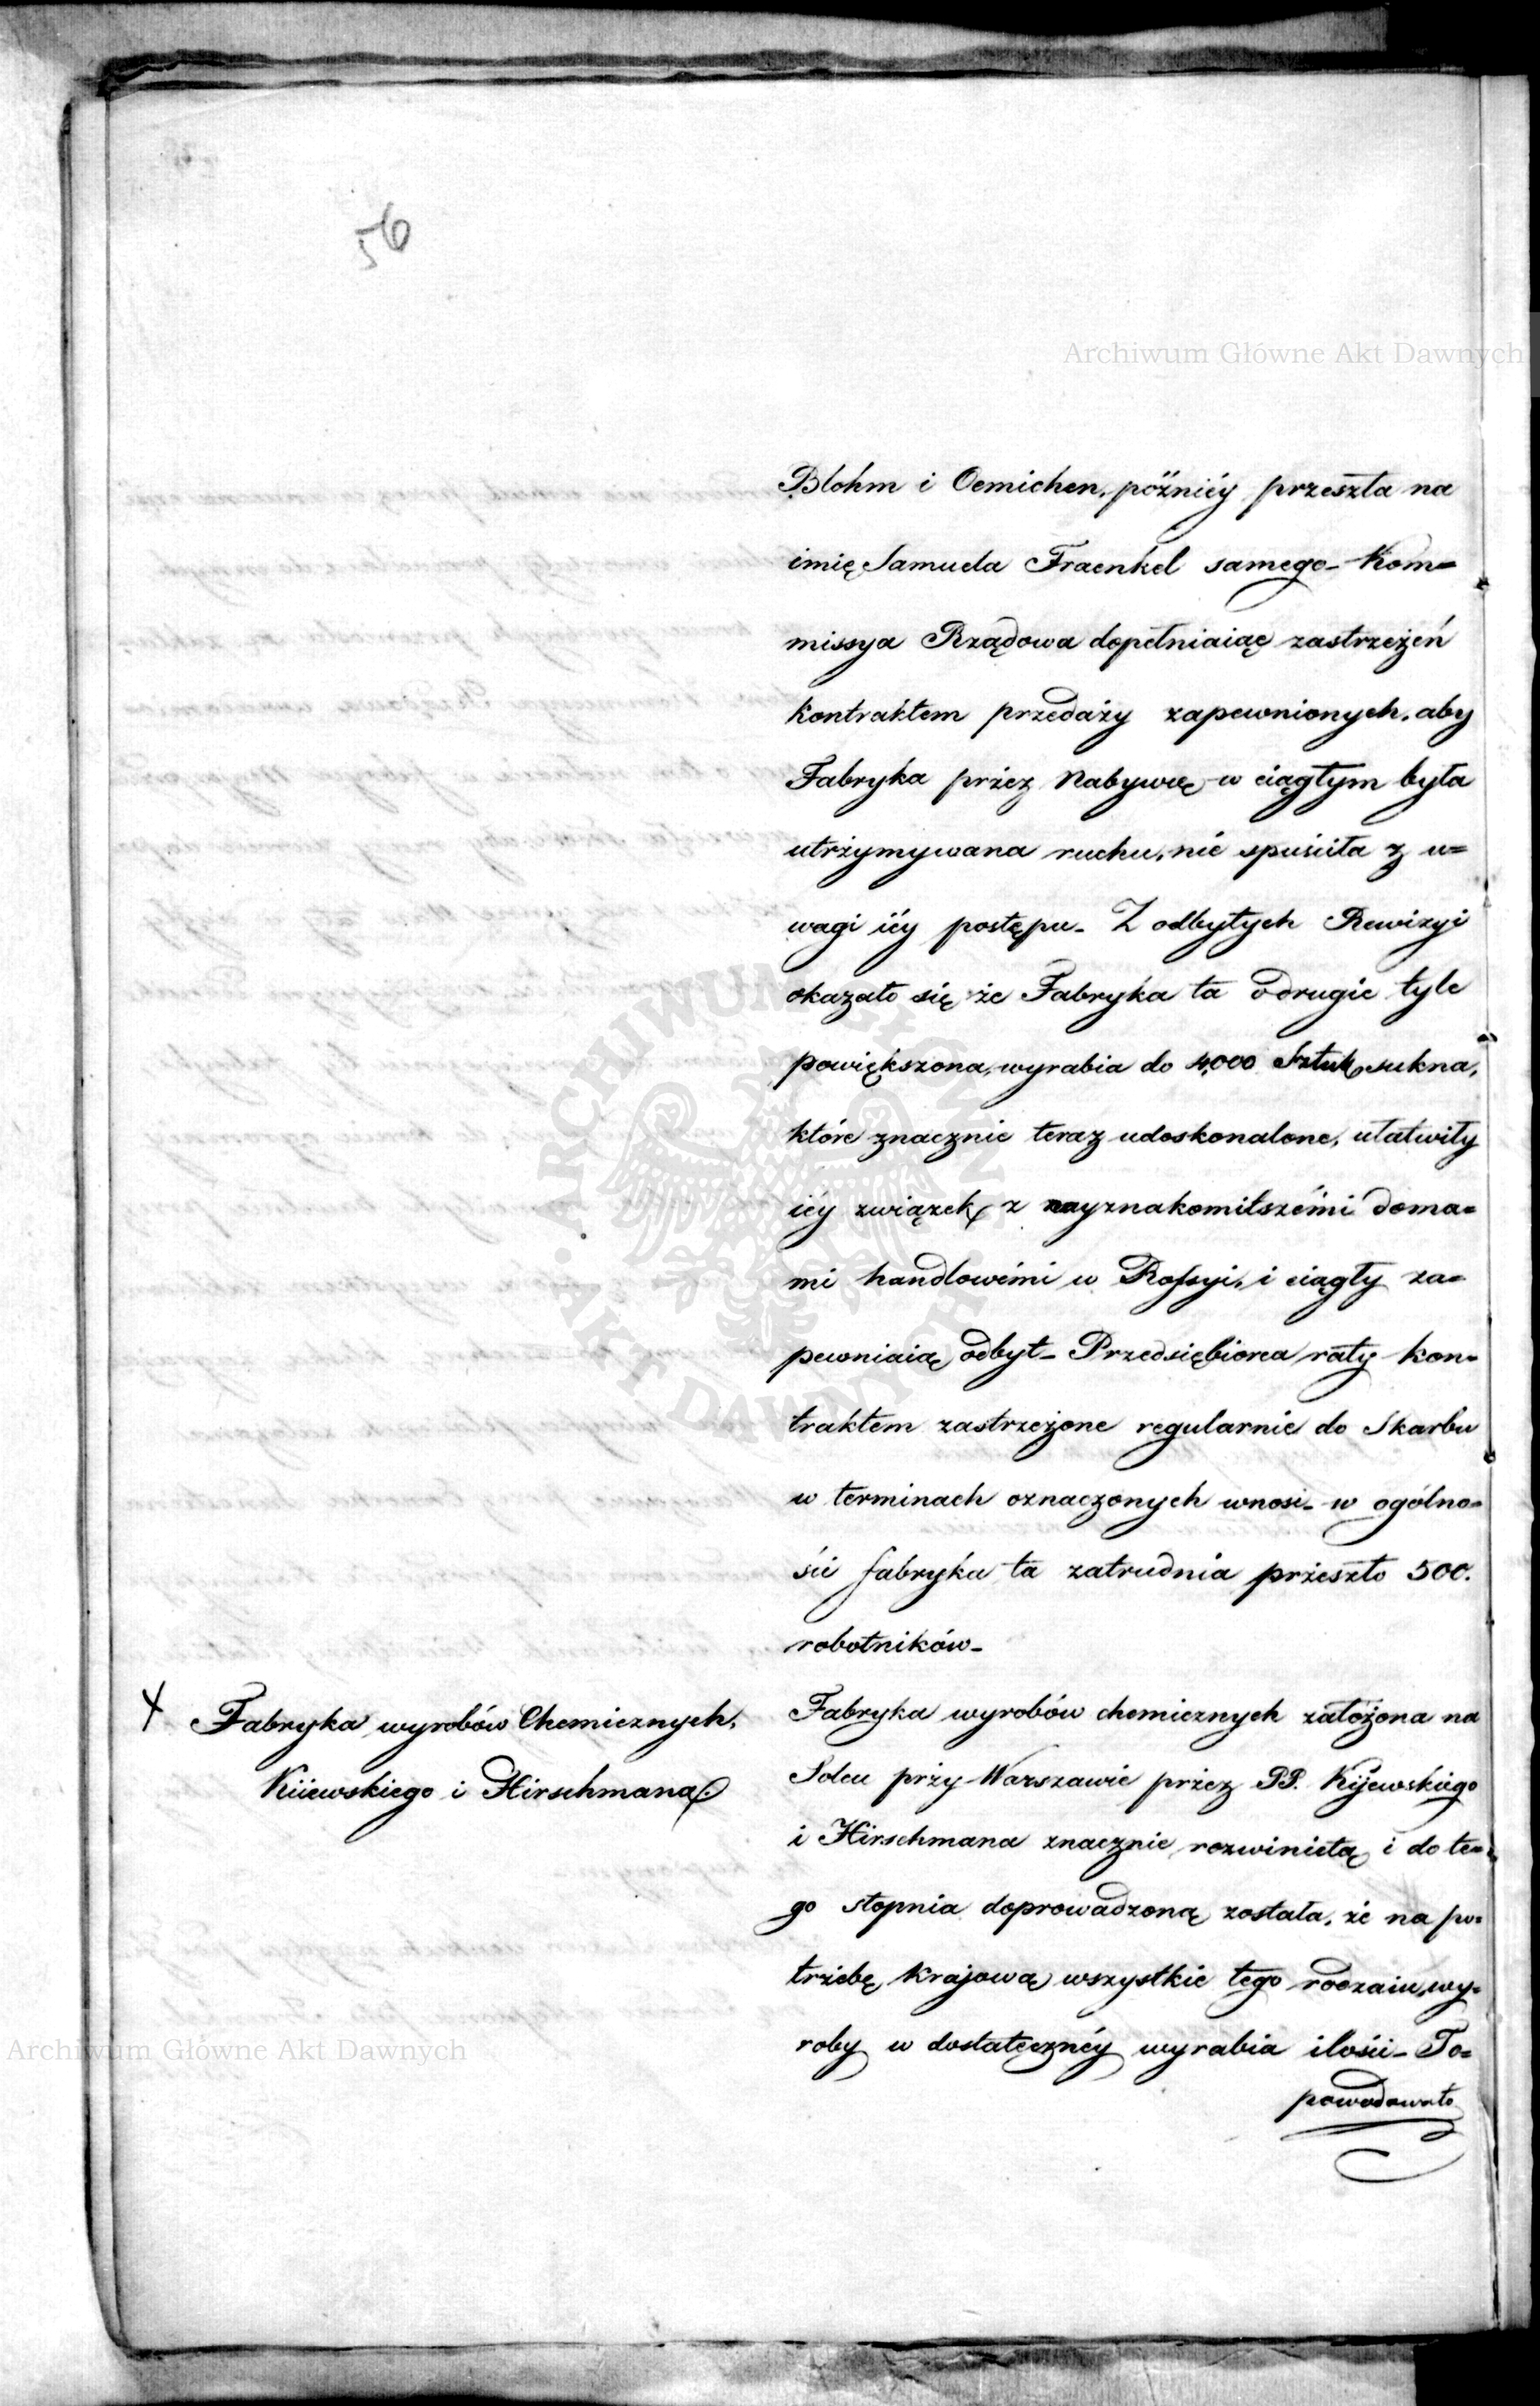 56
Blohm i Oemichen, późniéy przeszła na
imię Samuela Fraenkel samego - Kom=
missya Rządowa dopełniaiąc zastrzeżeń
kontraktem przedaży zapewnionych, aby
Fabryka przez Nabywcę w ciągłym była
utrzymywana ruchu, nie spuściła z u=
wagi iéy postępu - Z odbytych Rewizyi
okazało się że Fabryka ta o drugie tyle
powiększona, wyrabia do 4,000 Sztuk sukna,
które znacznie teraz udoskonalone, ułatwiły
iéy związek z nayznakomitszémi doma=
mi handlowémi w Rossyi, i ciągły za=
pewniaią odbyt - Przedsiębiorca raty kon=
traktem zastrzeżone regularnie do Skarbu
w terminach oznaczonych wnosi - w ogólno=
ści fabryka ta zatrudnia przeszło 500.
robotników -
4 Fabryka wyrobów Chemicznych,
Kiiewskiego i Hirschmana.
Fabryka wyrobów chemicznych założona na
Solcu przy Warszawie przez PP. Kijewskiego
i Hirschmana znacznie rozwiniętą i do te=
go stopnia doprowadzoną została, że na po=
trzebę krajową wszystkie tego rodzaiu wy=
roby w dostateczney wyrabia ilości - To=
powodowało
Archiwum Główne Akt Dawnych
Archiwum Główne Akt Dawnych
ARCHIWUM GŁÓWNE · AKT DAWNYCH ·